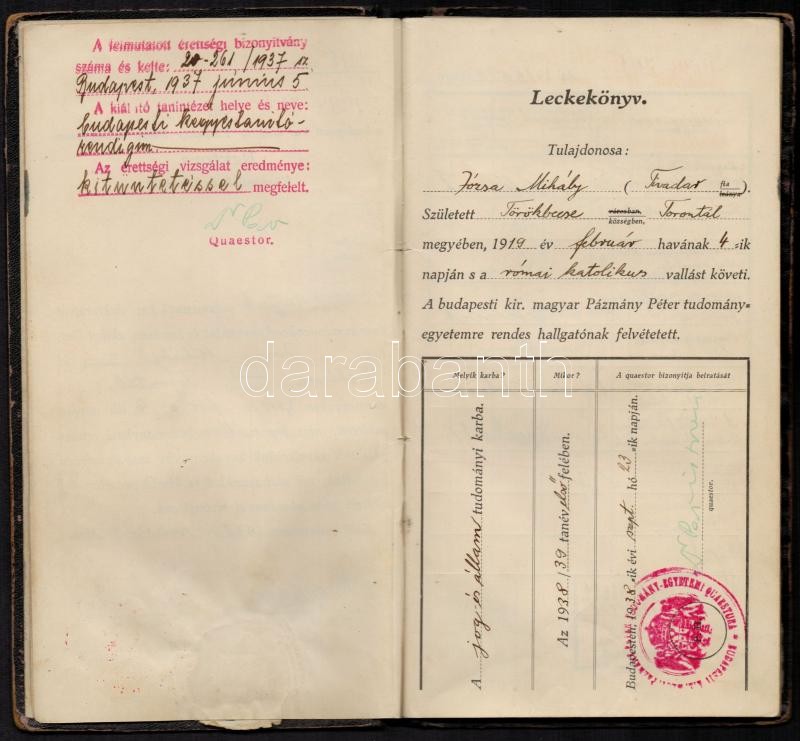 A felmutatott érettségi bizonyitvány
száma és kelte: 20-261/1937 sz.
Budapest, 1937 junius 5
A kiállító tanintézet helye és neve:
budapesti kegyestanitó-
rendi gim.
Az érettségi vizsgálat eredménye:
kitüntetéssel megfelelt.
Quaestor.
Leckekönyv.
Tulajdonosa:
Józsa Mihály (Tivadar fia
leánya).
Született Törökbecse városban, Torontál
községben,
megyében, 1919 év február havának 4-ik
napján s a római katolikus vallást követi.
A budapesti kir. magyar Pázmány Péter tudomány-
egyetemre rendes hallgatónak felvétetett.
Melyik karba? Mikor? A quaestor bizonyitja beiratását
A jog és állam tudományi karba.
Az 1938/39 tanév első felében.
Budapesten, 1938-ik évi szept. hó 23-ik napján.
quaestor.
darabanth